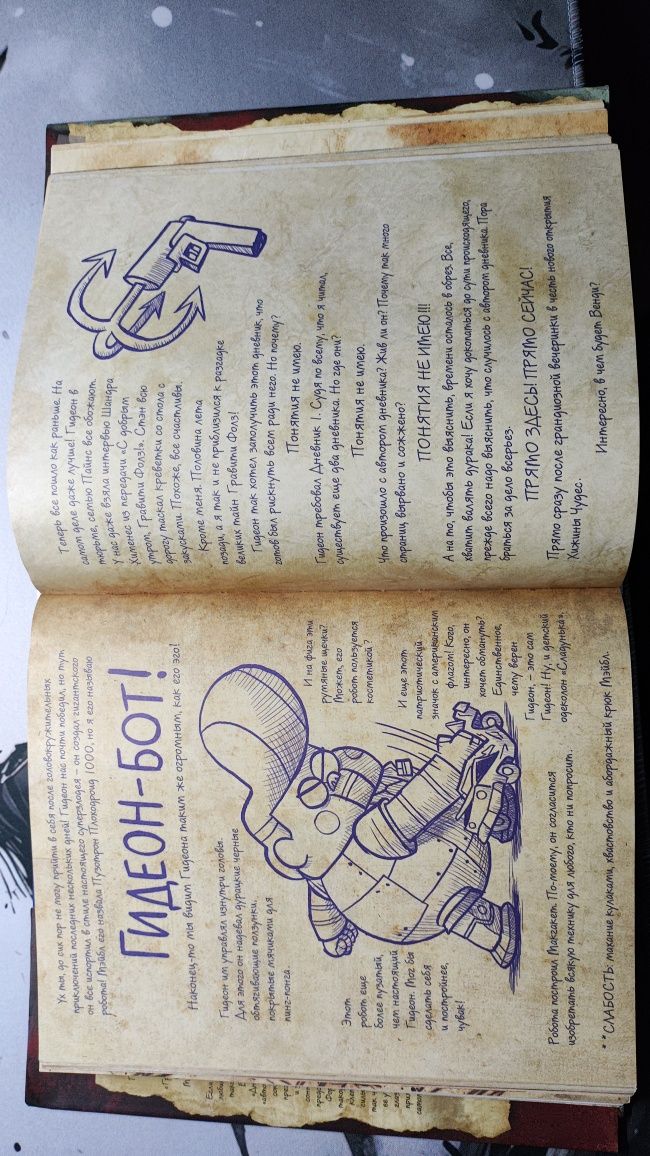 Ух ты, до сих пор не могу прийти в себя после головокружительных
приключений последних нескольких дней! Гидеон нас почти победил, но тут
он все испортил в стиле настоящего суперзлодея – он создал гигантского
робота! Мэйбл его назвала Пузотрон Плоходроид 1000, но я его называю
ГИДЕОН-БОТ!
Наконец-то мы видим Гидеона таким же огромным, как его эго!
Гидеон им управлял изнутри головы.
Для этого он надевал дурацкие черные
обтягивающие ползунки,
покрытые мячиками для
пинг-понга.
И на фига эти
румяные щечки?
Может, его
робот пользуется
косметикой?
Этот
робот еще
более пузатый,
чем настоящий
Гидеон. Мог бы
сделать себя
и постройнее,
чувак!
И еще этот
патриотический
значок с американским
флагом! Кого,
интересно, он
хочет обмануть?
Единственное,
чему верен
Гидеон, – это сам
Гидеон! Ну, и детский
одеколон «Сладунька».
Робота построил Макгакет. По-моему, он согласится
изобретать всякую технику для любого, кто ни попросит.
**СЛАБОСТЬ: махание кулаками, хвастовство и абордажный крюк Мэйбл.
Теперь все пошло как раньше. На
самом деле даже лучше! Гидеон в
тюрьме, семью Пайнс все обожают.
У нас даже взяла интервью Шандра
Хименес из передачи «С добрым
утром, Гравити Фолз!». Стэн всю
дорогу таскал креветки со стола с
закусками. Похоже, все счастливы.
Кроме меня. Половина лета
позади, а я так и не приблизился к разгадке
великих тайн Гравити Фолз!
Гидеон так хотел заполучить этот дневник, что
готов был рискнуть всем ради него. Но почему?
Понятия не имею.
Гидеон требовал Дневник 1. Судя по всему, что я читал,
существует еще два дневника. Но где они?
Понятия не имею.
Что произошло с автором дневника? Жив ли он? Почему так много
страниц вырвано и сожжено?
ПОНЯТИЯ НЕ ИМЕЮ!!!
А на то, чтобы это выяснить, времени осталось в обрез. Все,
хватит валять дурака! Если я хочу докопаться до сути происходящего,
прежде всего надо выяснить, что случилось с автором дневника. Пора
браться за дело всерьез.
ПРЯМО ЗДЕСЬ! ПРЯМО СЕЙЧАС!
Прямо сразу после грандиозной вечеринки в честь нового открытия
Хижины Чудес.
Интересно, в чем будет Венди?